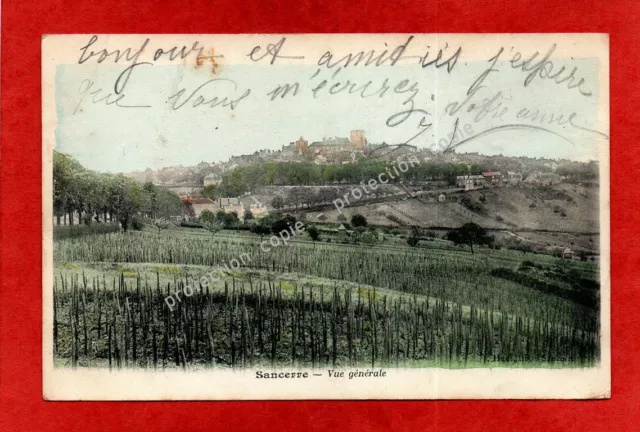 bonjour et amitiés j'espère
que vous m'écrirez
votre
copie
protection
copie
protection
copy
Sancerre — Vue générale